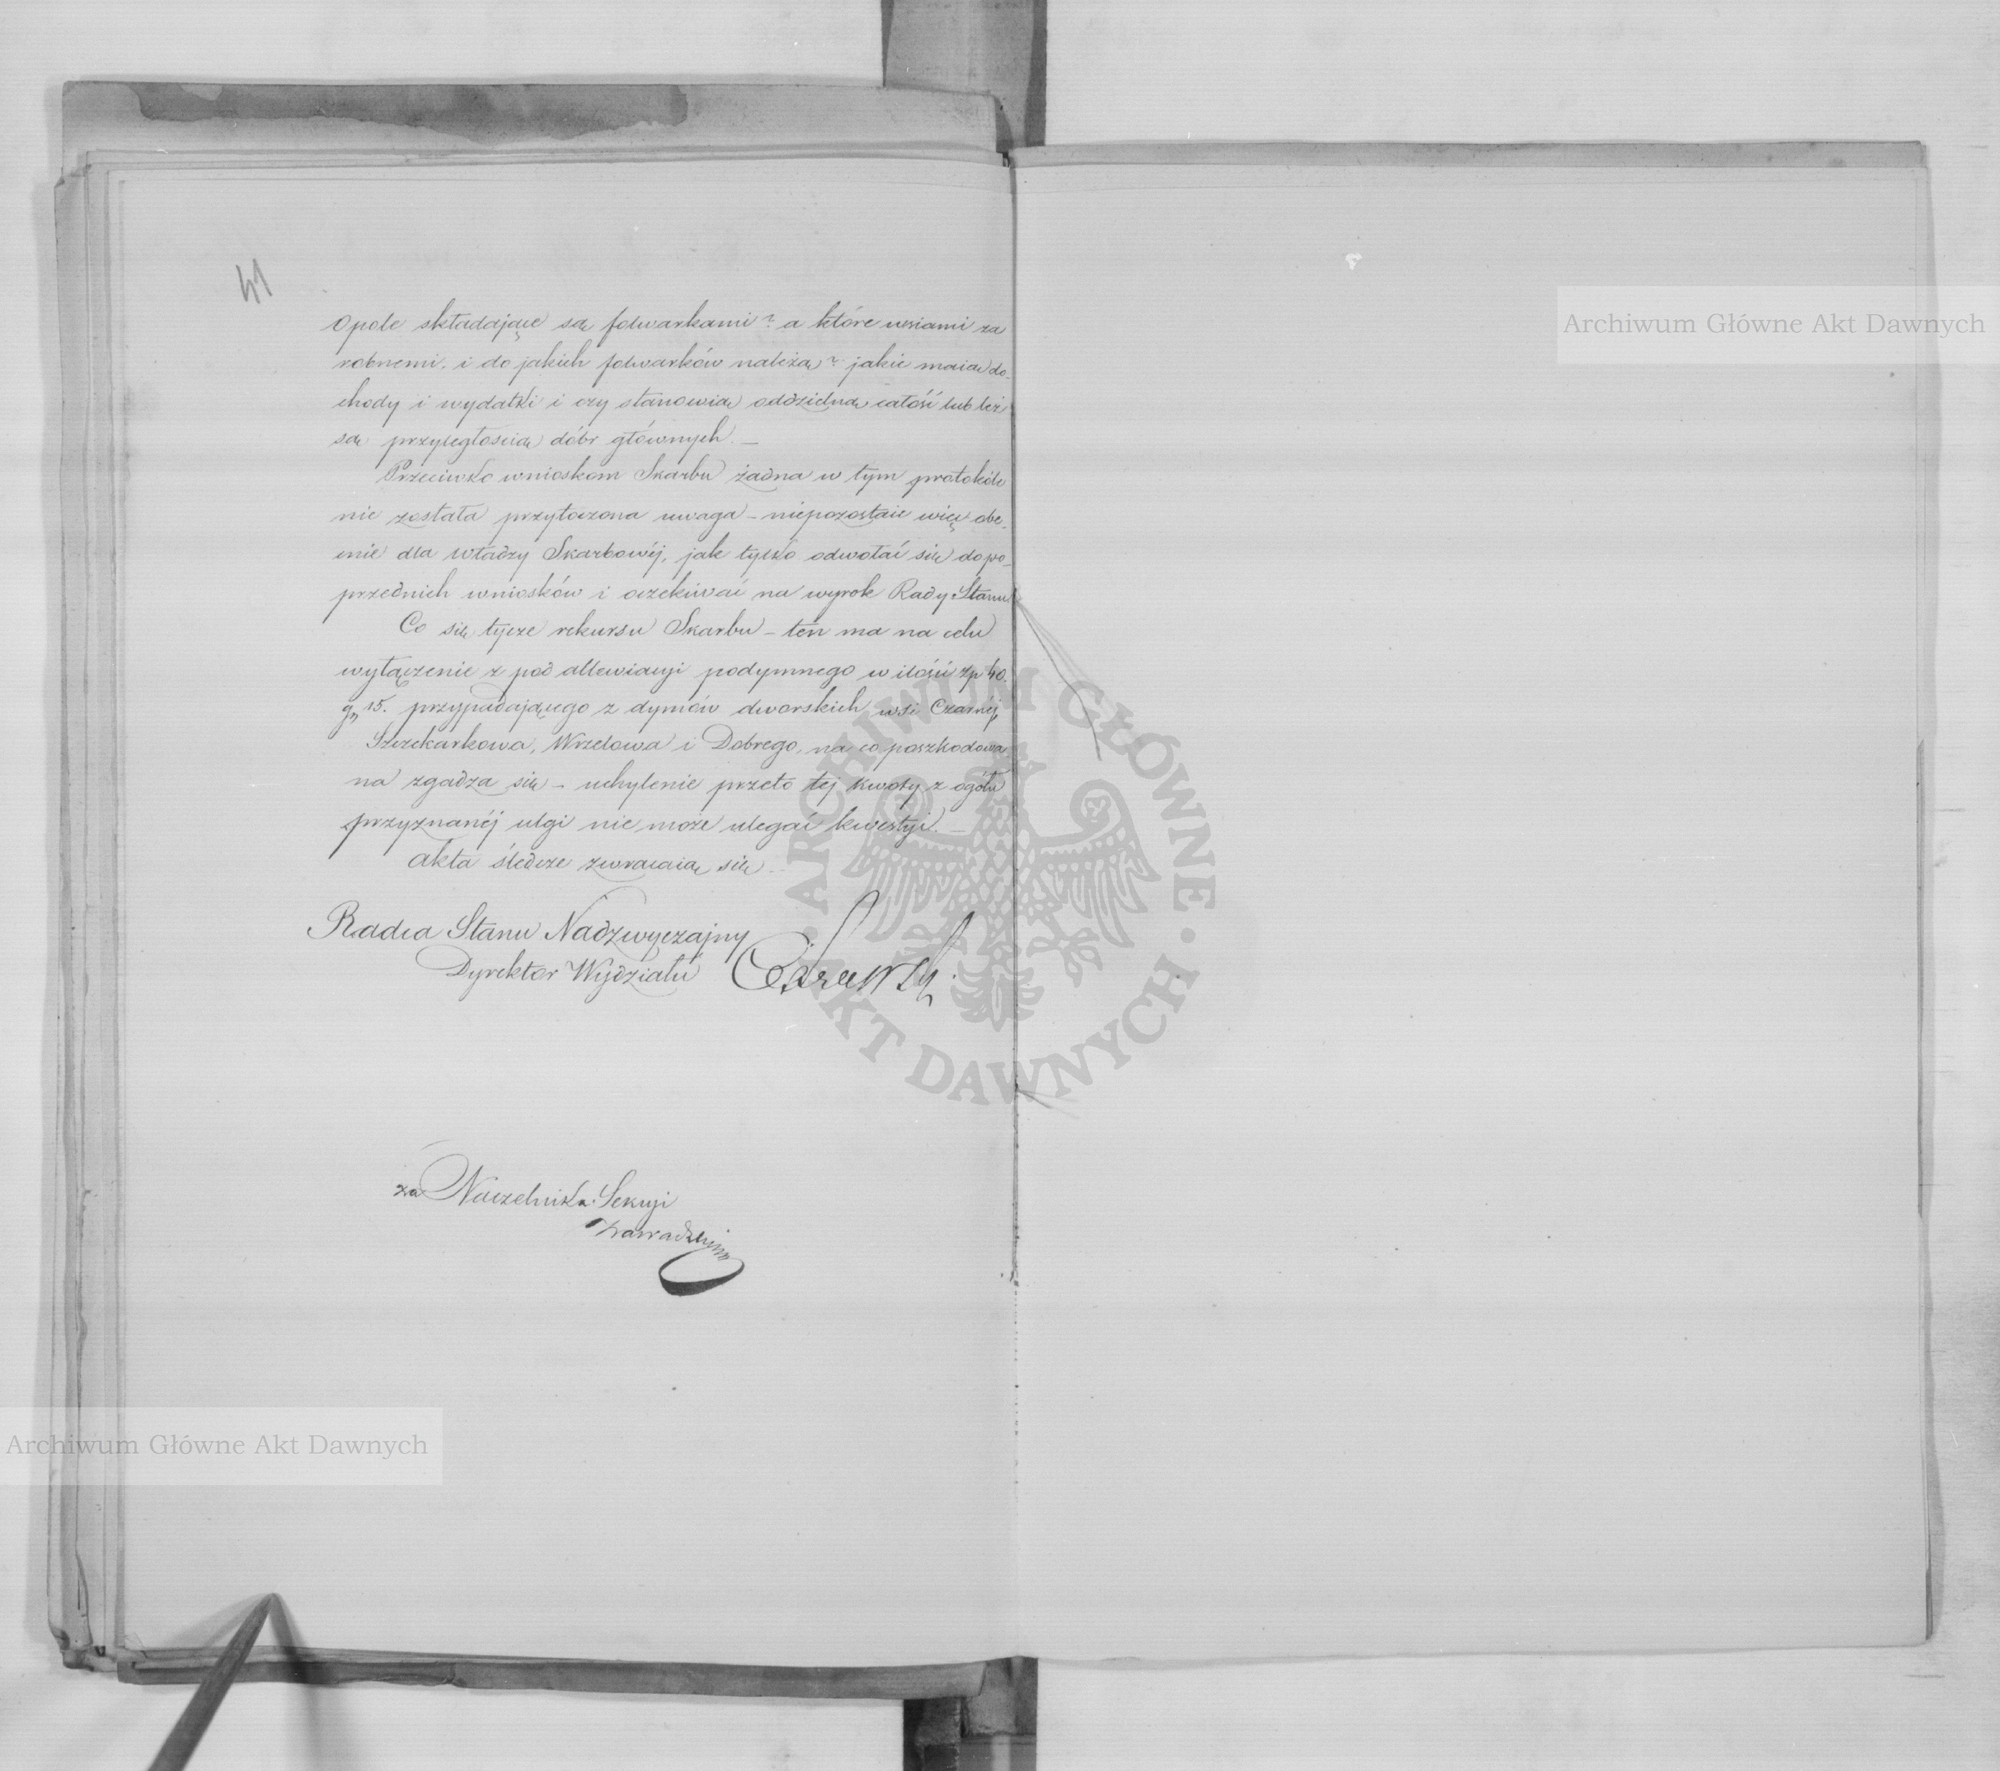 41
Opole składające są folwarkami? a które wsiami za
robnemi, i do jakich folwarków należą? jakie maią do-
chody i wydatki i czy stanowią oddzielną całość lub też
są przyległością dóbr głównych. —
Przeciwko wnioskom Skarbu żadna w tym protokóle
nie została przytoczona uwaga – niepozostaie więc obe-
cnie dla Władzy Skarbowéj, jak tylko odwołać się do po-
przednich wniosków i oczekiwać na wyrok Rady Stanu
Co się tycze rekursu Skarbu – ten ma na celu
wyłączenie z pod allewiacyi podymnego w ilości zp 40.
gr 15. przypadającego z dymów dworskich wsi Czarnéj,
Szczekarkowa, Wrzelowa i Dobrego, na co poszkodowa
na zgadza się – uchylenie przeto tej kwoty z ogółu
przyznanéj ulgi nie może ulegać kwestyi. —
Akta śledcze zwracaią się
Radca Stanu Nadzwyczajny
Dyrektor Wydziału
za Naczelnika Sekcyi
Archiwum Główne Akt Dawnych
Archiwum Główne Akt Dawnych
ARCHIWUM GŁÓWNE · AKT DAWNYCH ·